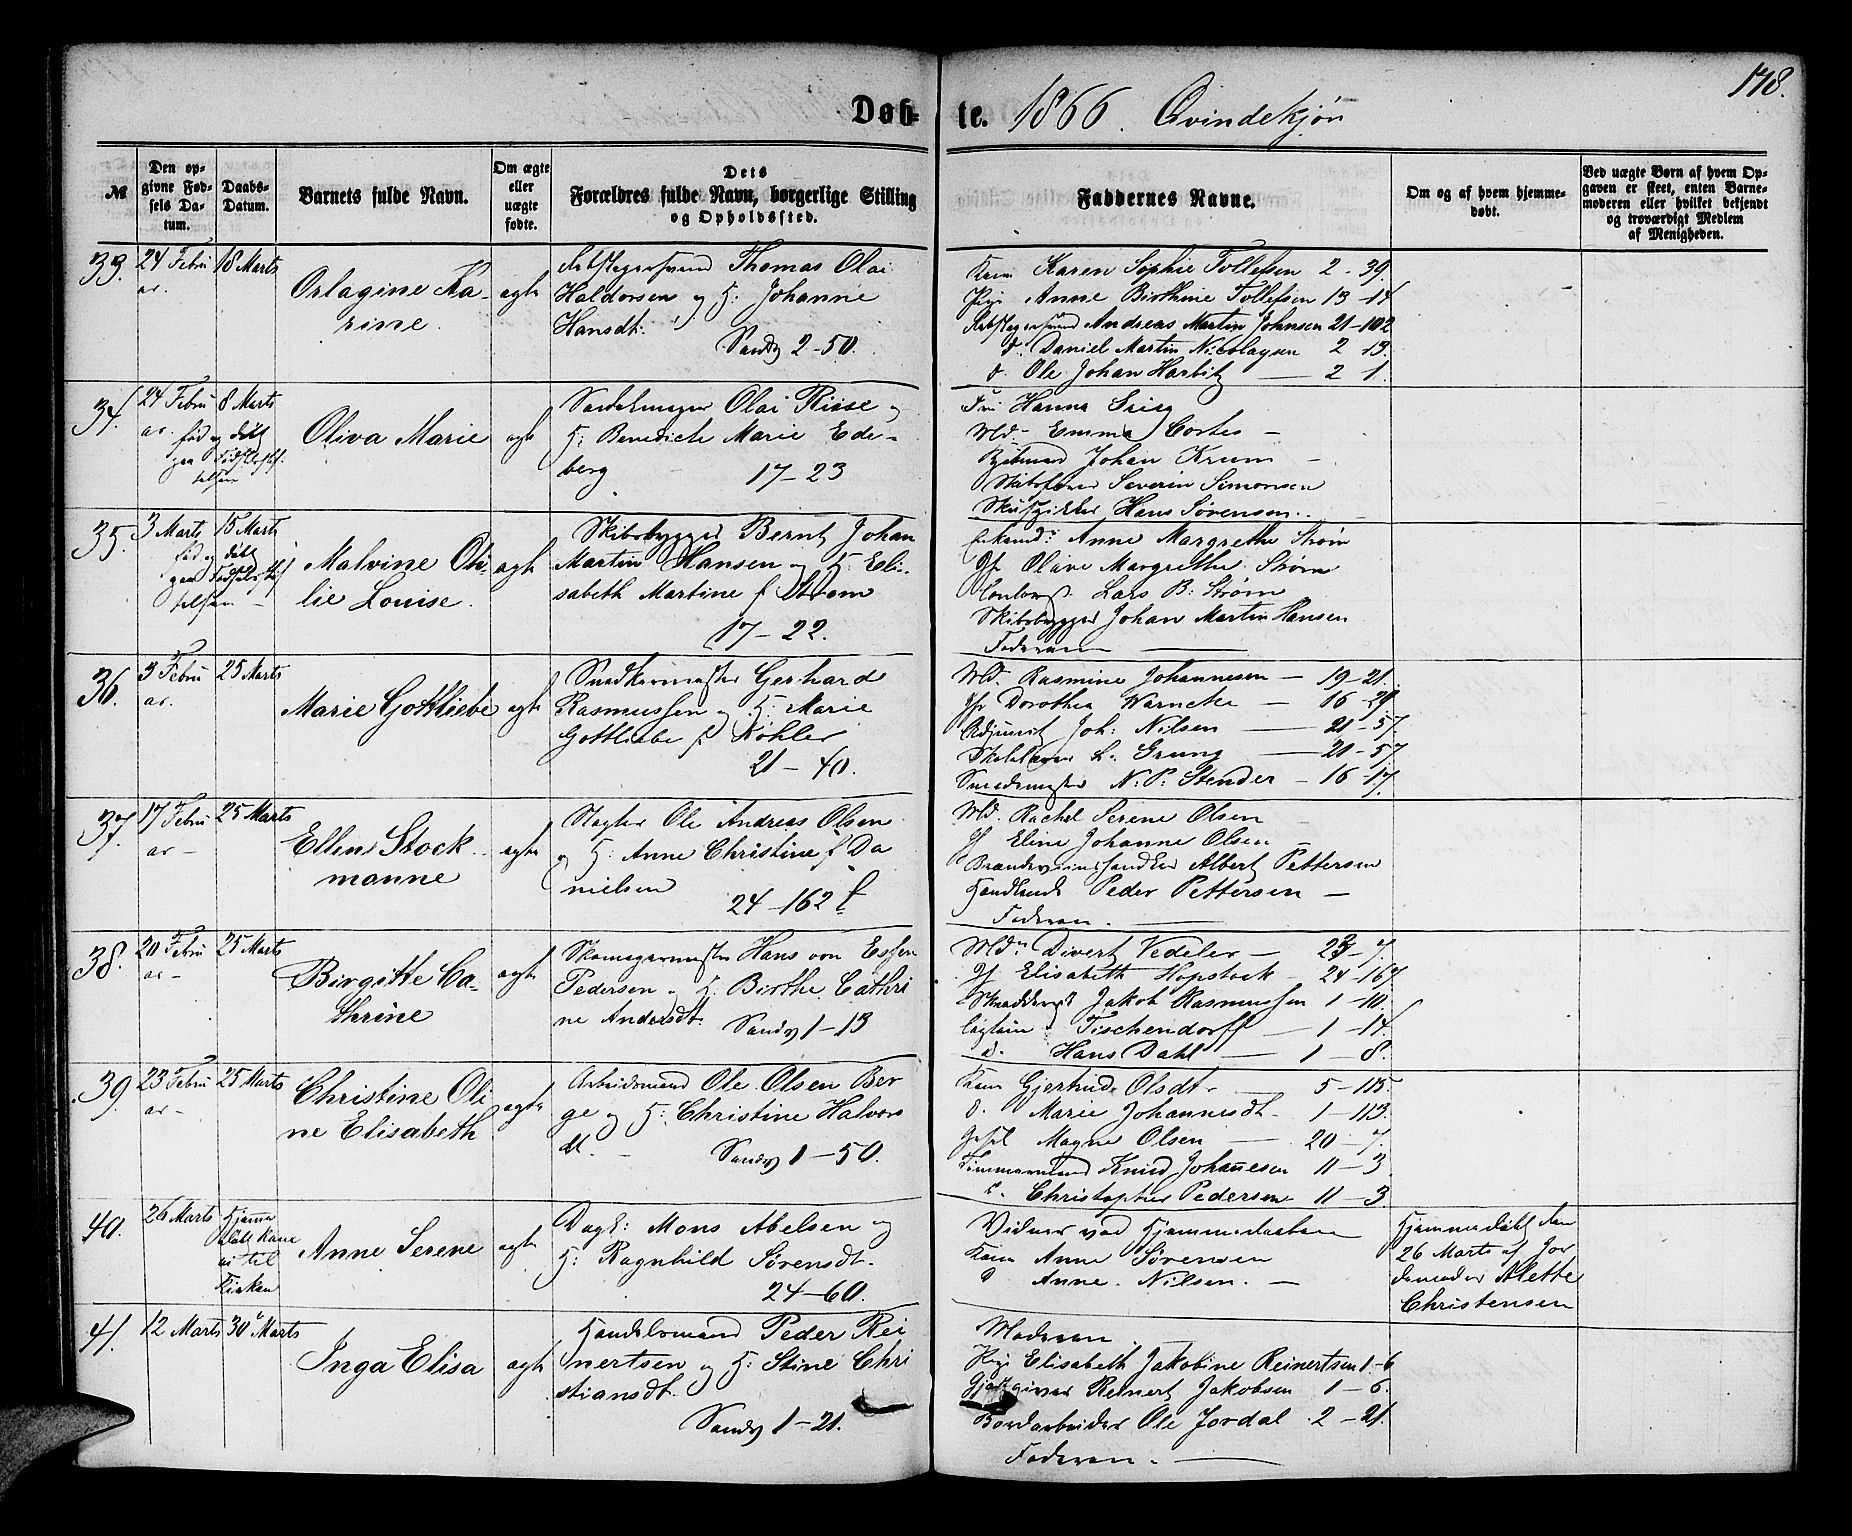 178.
Døb-te. 1866. Qvindekjøn
№
Den opgivne Fødsels Datum.
Daabs-Datum.
Barnets fulde Navn.
Om ægte eller uægte fødte.
Dets Forældres fulde Navn, borgerlige Stilling og Opholdssted.
Faddernes Navne.
Om og af hvem hjemmedøbt.
Ved uægte Børn af hvem Opgaven er skeet, enten Barnemoderen eller hvilket bekjendt og troværdigt Medlem af Menigheden.
33. 24 Februar. 18 Marts
Orlagine Ka-
rine.
ægte
Thomas Olai
Haldorsen og H: Johanne
Hansdt:
Sandv 2-50.
Karen Sophie Tollefsen 2-39.
Pige Anne Birthine Tollefsen 13-14
Andreas Martin Johnsen 21-102
d. Daniel Martin Nicolaysen 2 13.
d. Ole Johan Harbitz 2 1.
34. 24 Februar. 8 Marts
fød og døbt
paa Fødselsstif-
telsen
Oliva Marie
ægte
Olai Riise og
H: Benedicte Marie Ede-
berg 17-23
Hanna
Md. Emma Cortes
Johan Krum
Skibsfører Severin Simonsen
Hans Sørensen.
35. 3 Marts 15 Marts
fød og døbt
paa Fødselsstif
telsen
Malvine Oti-
lie Louise.
ægte
Skibsbygger Bernt Johan
Martin Hansen og H: Eli-
sabeth Martine f Strøm
17-22.
Anne Margrethe Strøm
Jf Olave Margrethe Strøm
Lars B. Strøm
Skibsbygger Johan Martin Hansen
Faderen
36. 3 Februar. 25 Marts
Marie Gottliebe
ægte
Snedkermester Gerhard
Rasmussen og H: Marie
Gottliebe f Køhler
21-40.
Md. Rasmine Johannesen 19-21.
Jf Dorothea Warncke 16-29
Adjunct Joh: Nilsen 21-57.
L. Grung 21-57
Smedemester N. P. Stender 16-17.
37. 17 Februar 25 Marts
Ellen Stock
manne
ægte
Slagter Ole Andreas Olsen
og H: Anne Christine f Da
nielsen
24-162
Md. Rachel Serene Olsen
Jf Eline Johanne Olsen
Brændeviinshandler Albert Pettersen
Peder Pettersen
Faderen.
38. 20 Februar 25 Marts
Birgitte Ca-
thrine
ægte
Skomagermester Hans von Essen
Pedersen og H: Birthe Cathri
ne Andersdt. Sandv 1-13
Md. Divert Vedeler 23-7.
Jf Elisabeth Hopstock 24-167.
Jakob Rasmussen 1-10.
Tischendorff 1-14.
d. Hans Dahl 1-8.
39. 23 Februar 25 Marts
Christine Oli
ne Elisabeth
ægte
Arbeidsmand Ole Olsen Ber
ge og H: Christine Halvors
dt.
Sandv 1-50.
Kone Gjertrud Olsdt. 5-115.
d. Marie Johannesdt. 1-113.
Magne Olsen 20-7.
Timmermand Knud Johannesen 11-3
d. Christopher Pedersen 11-3.
40. 26 Marts Hjemme
døbt kom
ei til
Kirken
Anne Serene
ægte
Dagk: Mons Abelsen og
H: Ragnhild Sørensdt.
24-60.
Vidner ved Hjemmedaaben
Kone Anne Sørensen
d Anne Nilsen.
Hjemmedøbt den
26 Marts af Jor
demoder Alette
Christensen
41. 12 Marts 30 Marts
Inga Elisa
ægte
Handelsmand Peder Rei
nertsen og H: Stine Chri
stiansdt.
Sandv 1-21.
Moderen
Pige Elisabeth Jakobine Reinertsen 1-6
Gjæstgiver Reinert Jakobsen 1-6.
Bordarbeider Ole Jordal 2-21.
Faderen.